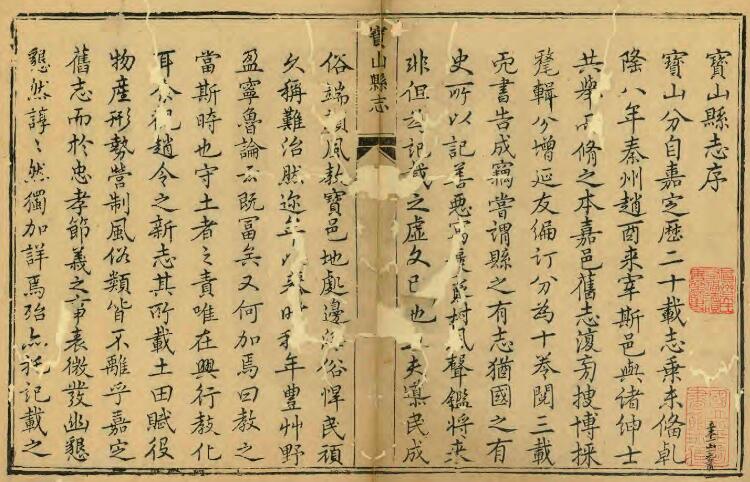 寶山縣志序
寶山分自嘉定歷二十載志乘未備乾
隆八年秦州趙酉來宰斯邑與諸紳士
共舉而脩之本嘉邑舊志復旁搜博採
薈輯分增延友編訂分為十卷閱三載
而書告成竊嘗謂縣之有志猶國之有
史所以記善惡寓褒樹風聲鑑將來
非但記載之虛文已也夫民成
寶山縣志
俗端賴風教寶邑地處邊俗悍民頑
久稱難治然迩年以時和年豐艸野
盈寧魯論云既富矣又何加焉曰教之
當斯時也守土者之責唯在興行教化
耳今觀趙令之新志其所載土田賦役
物產形勢營制風俗類皆不離乎嘉定
舊志而於忠孝節義之事表微發幽懇
懇然諄〻然獨加詳焉殆亦記載之